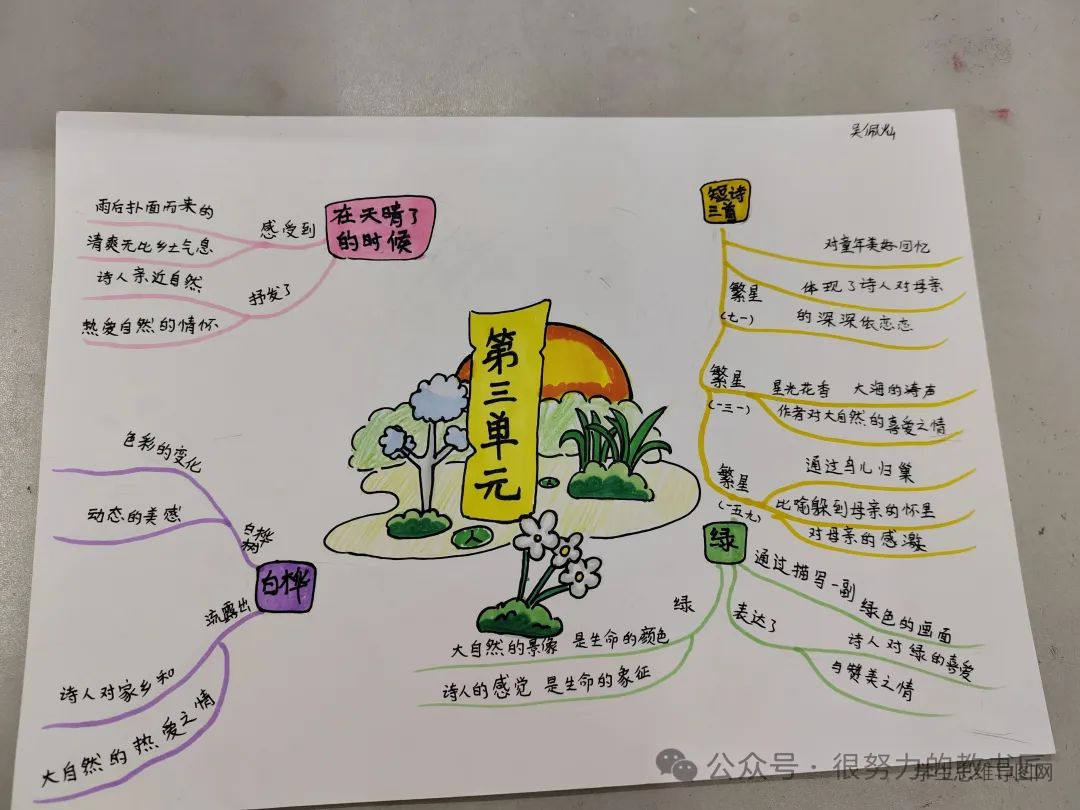 吴佩灿
第三单元
短诗
三首
繁星
(七一)
对童年美好回忆
体现了诗人对母亲
的深深依恋恋
繁星
(一三一)
星光花香 大海的涛声
作者对大自然的喜爱之情
繁星
(一五九)
通过鸟儿归巢
比喻躲到母亲的怀里
对母亲的感激
绿
通过描写一副 绿色的画面
表达了
诗人对绿的喜爱
与赞美之情
绿
大自然的景像 是生命的颜色
诗人的感觉 是生命的象征
白桦
白桦树
色彩的变化
动态的美感
流露出
诗人对家乡和
大自然的热爱之情
在天晴了
的时候
感受到
雨后扑面而来的
清爽无比乡土气息
抒发了
诗人亲近自然
热爱自然的情怀
公众号·很努力的教书匠
学生思维导图网